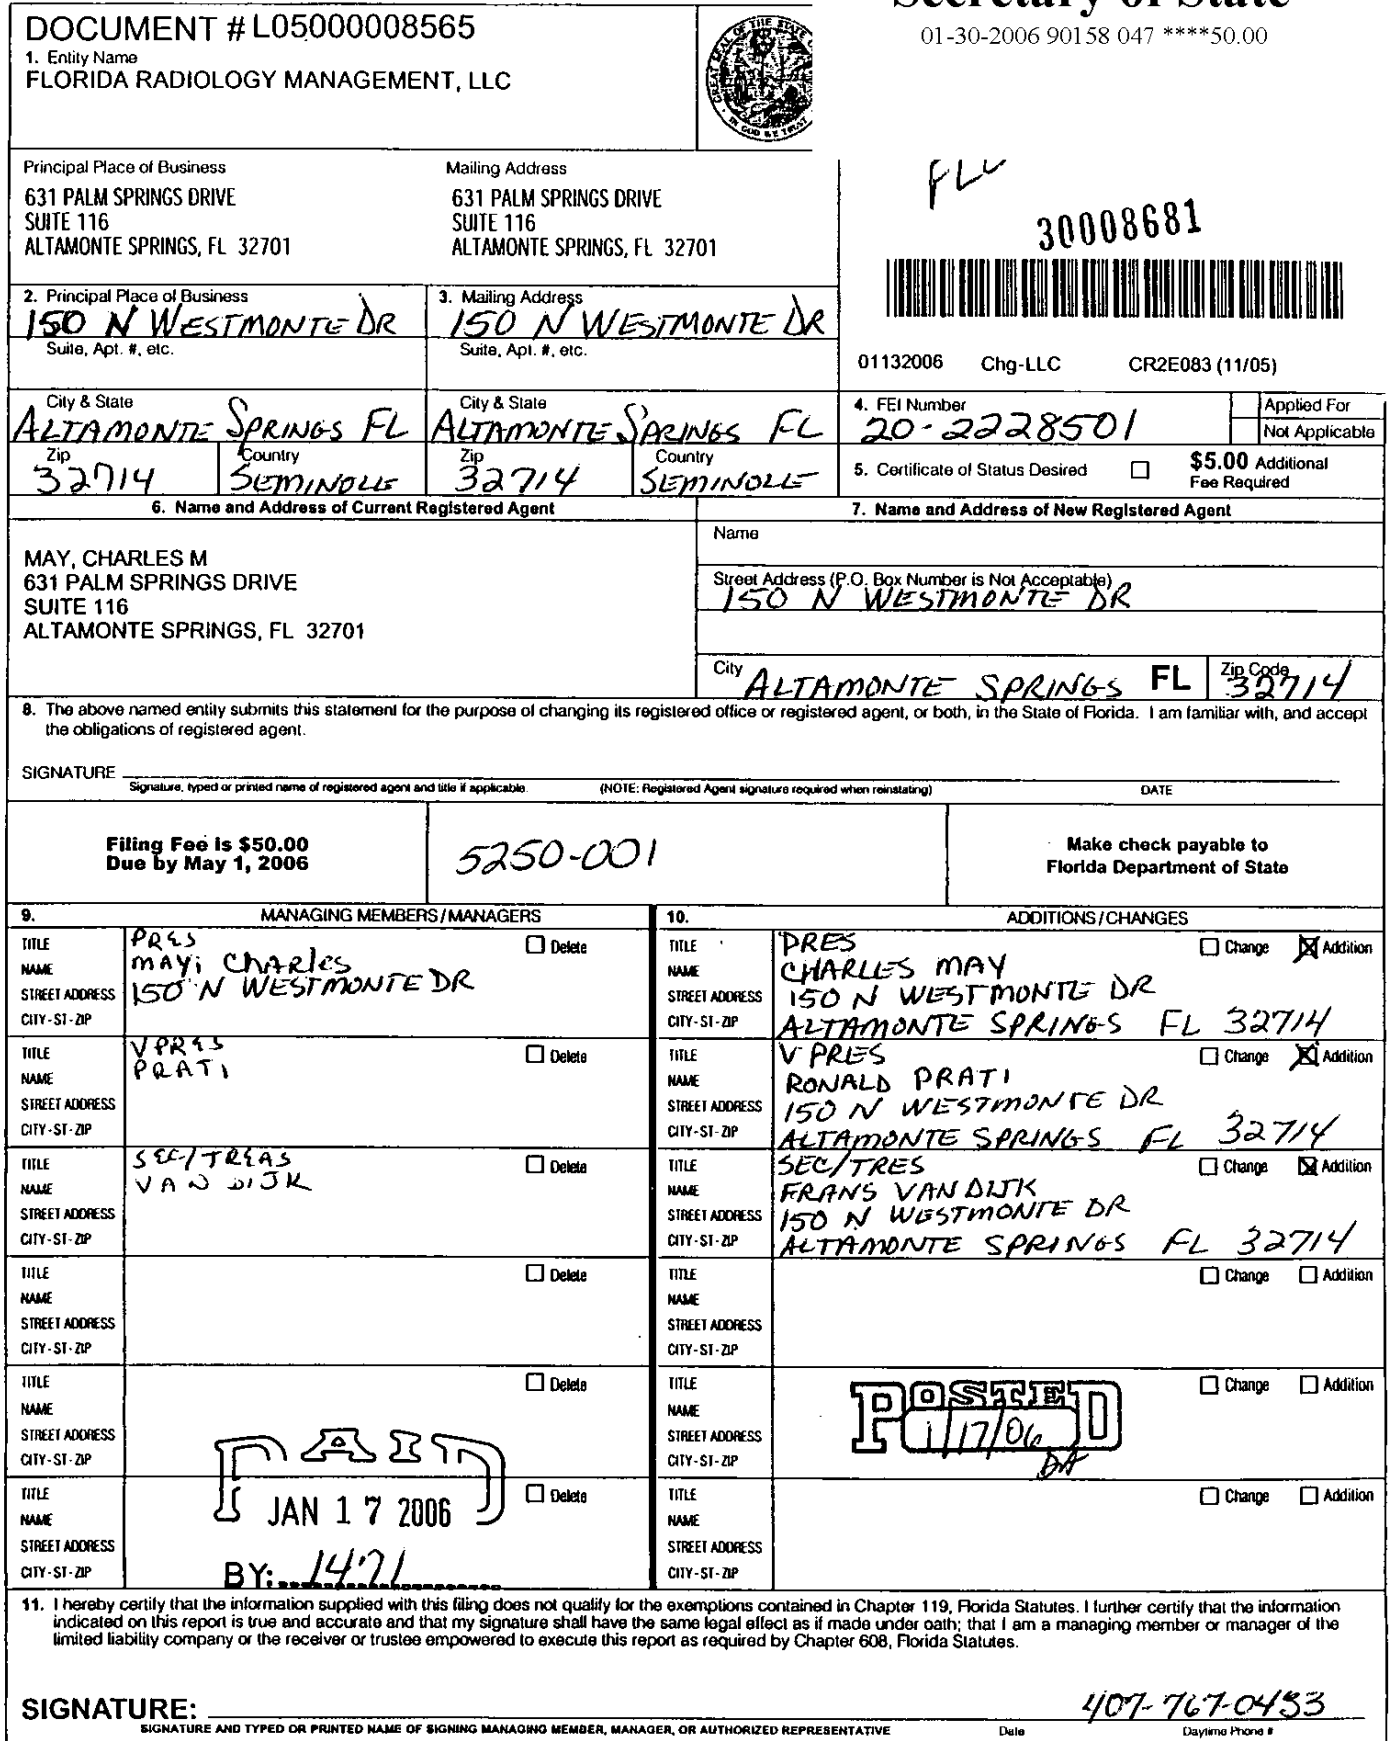 Secretary of State
01-30-2006 90158 047 ****50.00
DOCUMENT # L05000008565
1. Entity Name
FLORIDA RADIOLOGY MANAGEMENT, LLC
Principal Place of Business
631 PALM SPRINGS DRIVE
SUITE 116
ALTAMONTE SPRINGS, FL 32701
Mailing Address
631 PALM SPRINGS DRIVE
SUITE 116
ALTAMONTE SPRINGS, FL 32701
30008681
2. Principal Place of Business
150 N WESTMONTE DR
Suite, Apt. #, etc.
3. Mailing Address
150 N WESTMONTE DR
Suite, Apt. #, etc.
01132006 Chg-LLC CR2E083 (11/05)
City & State
ALTAMONTE SPRINGS FL
City & State
ALTAMONTE SPRINGS FL
4. FEI Number
20-2228501
Applied For
Not Applicable
Zip
32714
Country
SEMINOLE
Zip
32714
Country
SEMINOLE
5. Certificate of Status Desired
$5.00 Additional
Fee Required
6. Name and Address of Current Registered Agent
MAY, CHARLES M
631 PALM SPRINGS DRIVE
SUITE 116
ALTAMONTE SPRINGS, FL 32701
7. Name and Address of New Registered Agent
Name
Street Address (P.O. Box Number is Not Acceptable)
150 N WESTMONTE DR
City
ALTAMONTE SPRINGS FL
Zip Code
32714
8. The above named entity submits this statement for the purpose of changing its registered office or registered agent, or both, in the State of Florida. I am familiar with, and accept
the obligations of registered agent.
SIGNATURE
Signature, typed or printed name of registered agent and title if applicable. (NOTE: Registered Agent signature required when reinstating) DATE
Filing Fee is $50.00
Due by May 1, 2006
5250-001
Make check payable to
Florida Department of State
9. MANAGING MEMBERS/MANAGERS
TITLE PRES Delete
NAME MAY, CHARLES
STREET ADDRESS 150 N WESTMONTE DR
CITY-ST-ZIP
TITLE V PRES Delete
NAME PRATI
STREET ADDRESS
CITY-ST-ZIP
TITLE SEC/TREAS Delete
NAME VAN DIJK
STREET ADDRESS
CITY-ST-ZIP
TITLE Delete
NAME
STREET ADDRESS
CITY-ST-ZIP
TITLE Delete
NAME
STREET ADDRESS
CITY-ST-ZIP
PAID
TITLE Delete
NAME JAN 17 2006
STREET ADDRESS
CITY-ST-ZIP BY: 1471
10. ADDITIONS/CHANGES
TITLE PRES Change Addition
NAME CHARLES MAY
STREET ADDRESS 150 N WESTMONTE DR
CITY-ST-ZIP ALTAMONTE SPRINGS FL 32714
TITLE V PRES Change Addition
NAME RONALD PRATI
STREET ADDRESS 150 N WESTMONTE DR
CITY-ST-ZIP ALTAMONTE SPRINGS FL 32714
TITLE SEC/TRES Change Addition
NAME FRANS VAN DIJK
STREET ADDRESS 150 N WESTMONTE DR
CITY-ST-ZIP ALTAMONTE SPRINGS FL 32714
TITLE Change Addition
NAME
STREET ADDRESS
CITY-ST-ZIP
TITLE POSTED Change Addition
NAME
STREET ADDRESS 1/17/06
CITY-ST-ZIP
TITLE Change Addition
NAME
STREET ADDRESS
CITY-ST-ZIP
11. I hereby certify that the information supplied with this filing does not qualify for the exemptions contained in Chapter 119, Florida Statutes. I further certify that the information
indicated on this report is true and accurate and that my signature shall have the same legal effect as if made under oath; that I am a managing member or manager of the
limited liability company or the receiver or trustee empowered to execute this report as required by Chapter 608, Florida Statutes.
SIGNATURE: 407-767-0433
SIGNATURE AND TYPED OR PRINTED NAME OF SIGNING MANAGING MEMBER, MANAGER, OR AUTHORIZED REPRESENTATIVE Date Daytime Phone #